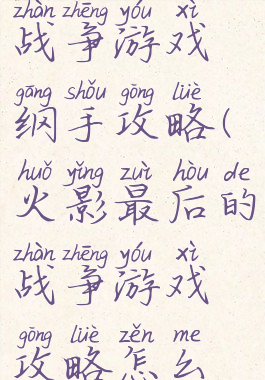 zhàn zhēng yóu xì
战争游戏
gāng shǒu gōng lüè
纲手攻略(
huǒ yǐng zuì hòu de
火影最后的
zhàn zhēng yóu xì
战争游戏
gōng lüè zěn me
攻略怎么